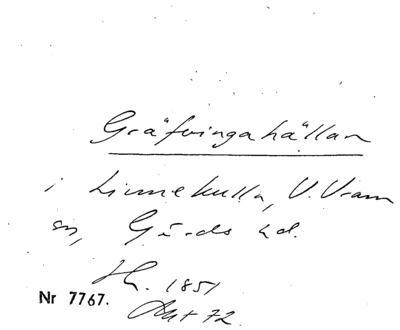 Gräfvingahällan
i Linnekulla, V. Vram
sn, Gärds hd.
1851
Nr 7767.
72